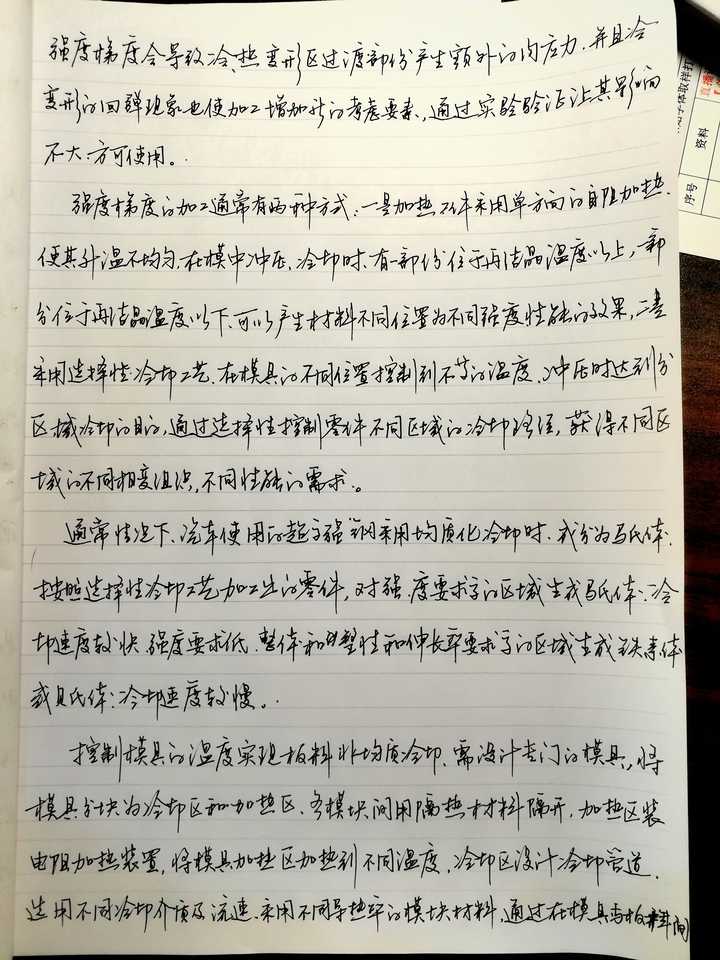 强度梯度会导致冷、热变形区过渡部份产生额外的内应力，并且冷
变形的回弹现象也使加工增加新的考虑要素，通过实验验证让其影响
不大，方可使用。
强度梯度的加工通常有两种方式：一是加热环节采用单方向的自阻加热，
使其升温不均匀，在模中冲压、冷却时，有一部份位于再结晶温度以上，一部
分位于再结晶温度以下，可以产生材料不同位置为不同强度性能的效果，二是
采用选择性冷却工艺，在模具的不同位置控制到不等的温度，冲压时达到分
区域冷却的目的，通过选择性控制零件不同区域的冷却路径，获得不同区
域的不同相变组织，不同性能的需求。
通常情况下，汽车使用的超高强钢采用均质化冷却时，成分为马氏体，
按照选择性冷却工艺加工出的零件，对强度要求高的区域生成马氏体：冷
却速度较快，强度要求低，整体和塑性和伸长率要求高的区域生成铁素体
或贝氏体：冷却速度较慢。
控制模具的温度实现板料非均质冷却，需设计专门的模具，将
模具分块为冷却区和加热区，各模块间用隔热材料隔开，加热区装
电阻加热装置，将模具加热区加热到不同温度，冷却区设计冷却管道，
选用不同冷却介质及流速，采用不同导热率的模块材料，通过在模具与板料间
资料
序号